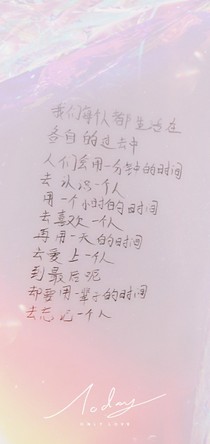 我们每个人都生活在
各自的过去中
人们会用一分钟的时间
去认识一个人
用一个小时的时间
去喜欢一个人
再用一天的时间
去爱上一个人
到最后呢
却要用一辈子的时间
去忘记一个人
Today
ONLY LOVE